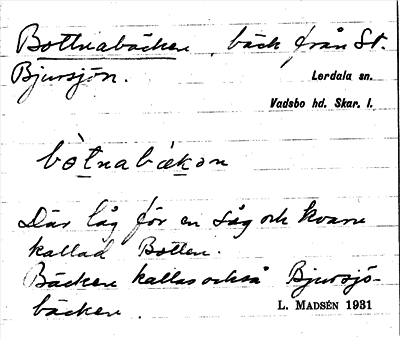 Bottnabäcken, bäck från St.
Bjursjön.
Lerdala sn.
Vadsbo hd. Skar. l.
bòtnabækən
Där låg för en såg och kvarn
kallad Botten.
Bäcken kallas också Bjursjö-
bäcken.
L. MADSÉN 1931